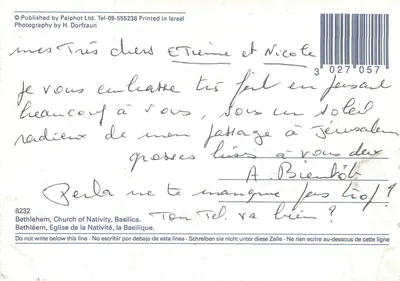 © Published by Palphot Ltd. Tel-09-555238 Printed in Israel
Photography by H. Dorfzaun
mes Très chers Etienne et Nicole
3 027057
je vous embrasse très fort en pensant
beaucoup à vous, sous un soleil
radieux de mon passage à Jerusalem
grosses bises à vous deux
A. Bientôt
Perla ne te manque pas trop?
Ton Tel. va bien?
8232
Bethlehem, Church of Nativity, Basilica.
Bethléem, Eglise de la Nativité, la Basilique.
Do not write below this line - No escribir por debajo de esta linea - Schreiben sie nicht unter diese Zeile - Ne rien ecrire au-dessous de cette ligne